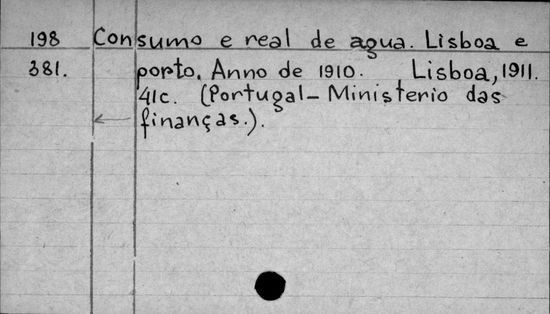 198 Consumo e real de agua. Lisboa e
381. porto. Anno de 1910. Lisboa, 1911.
41c. (Portugal - Ministerio das
finanças.).